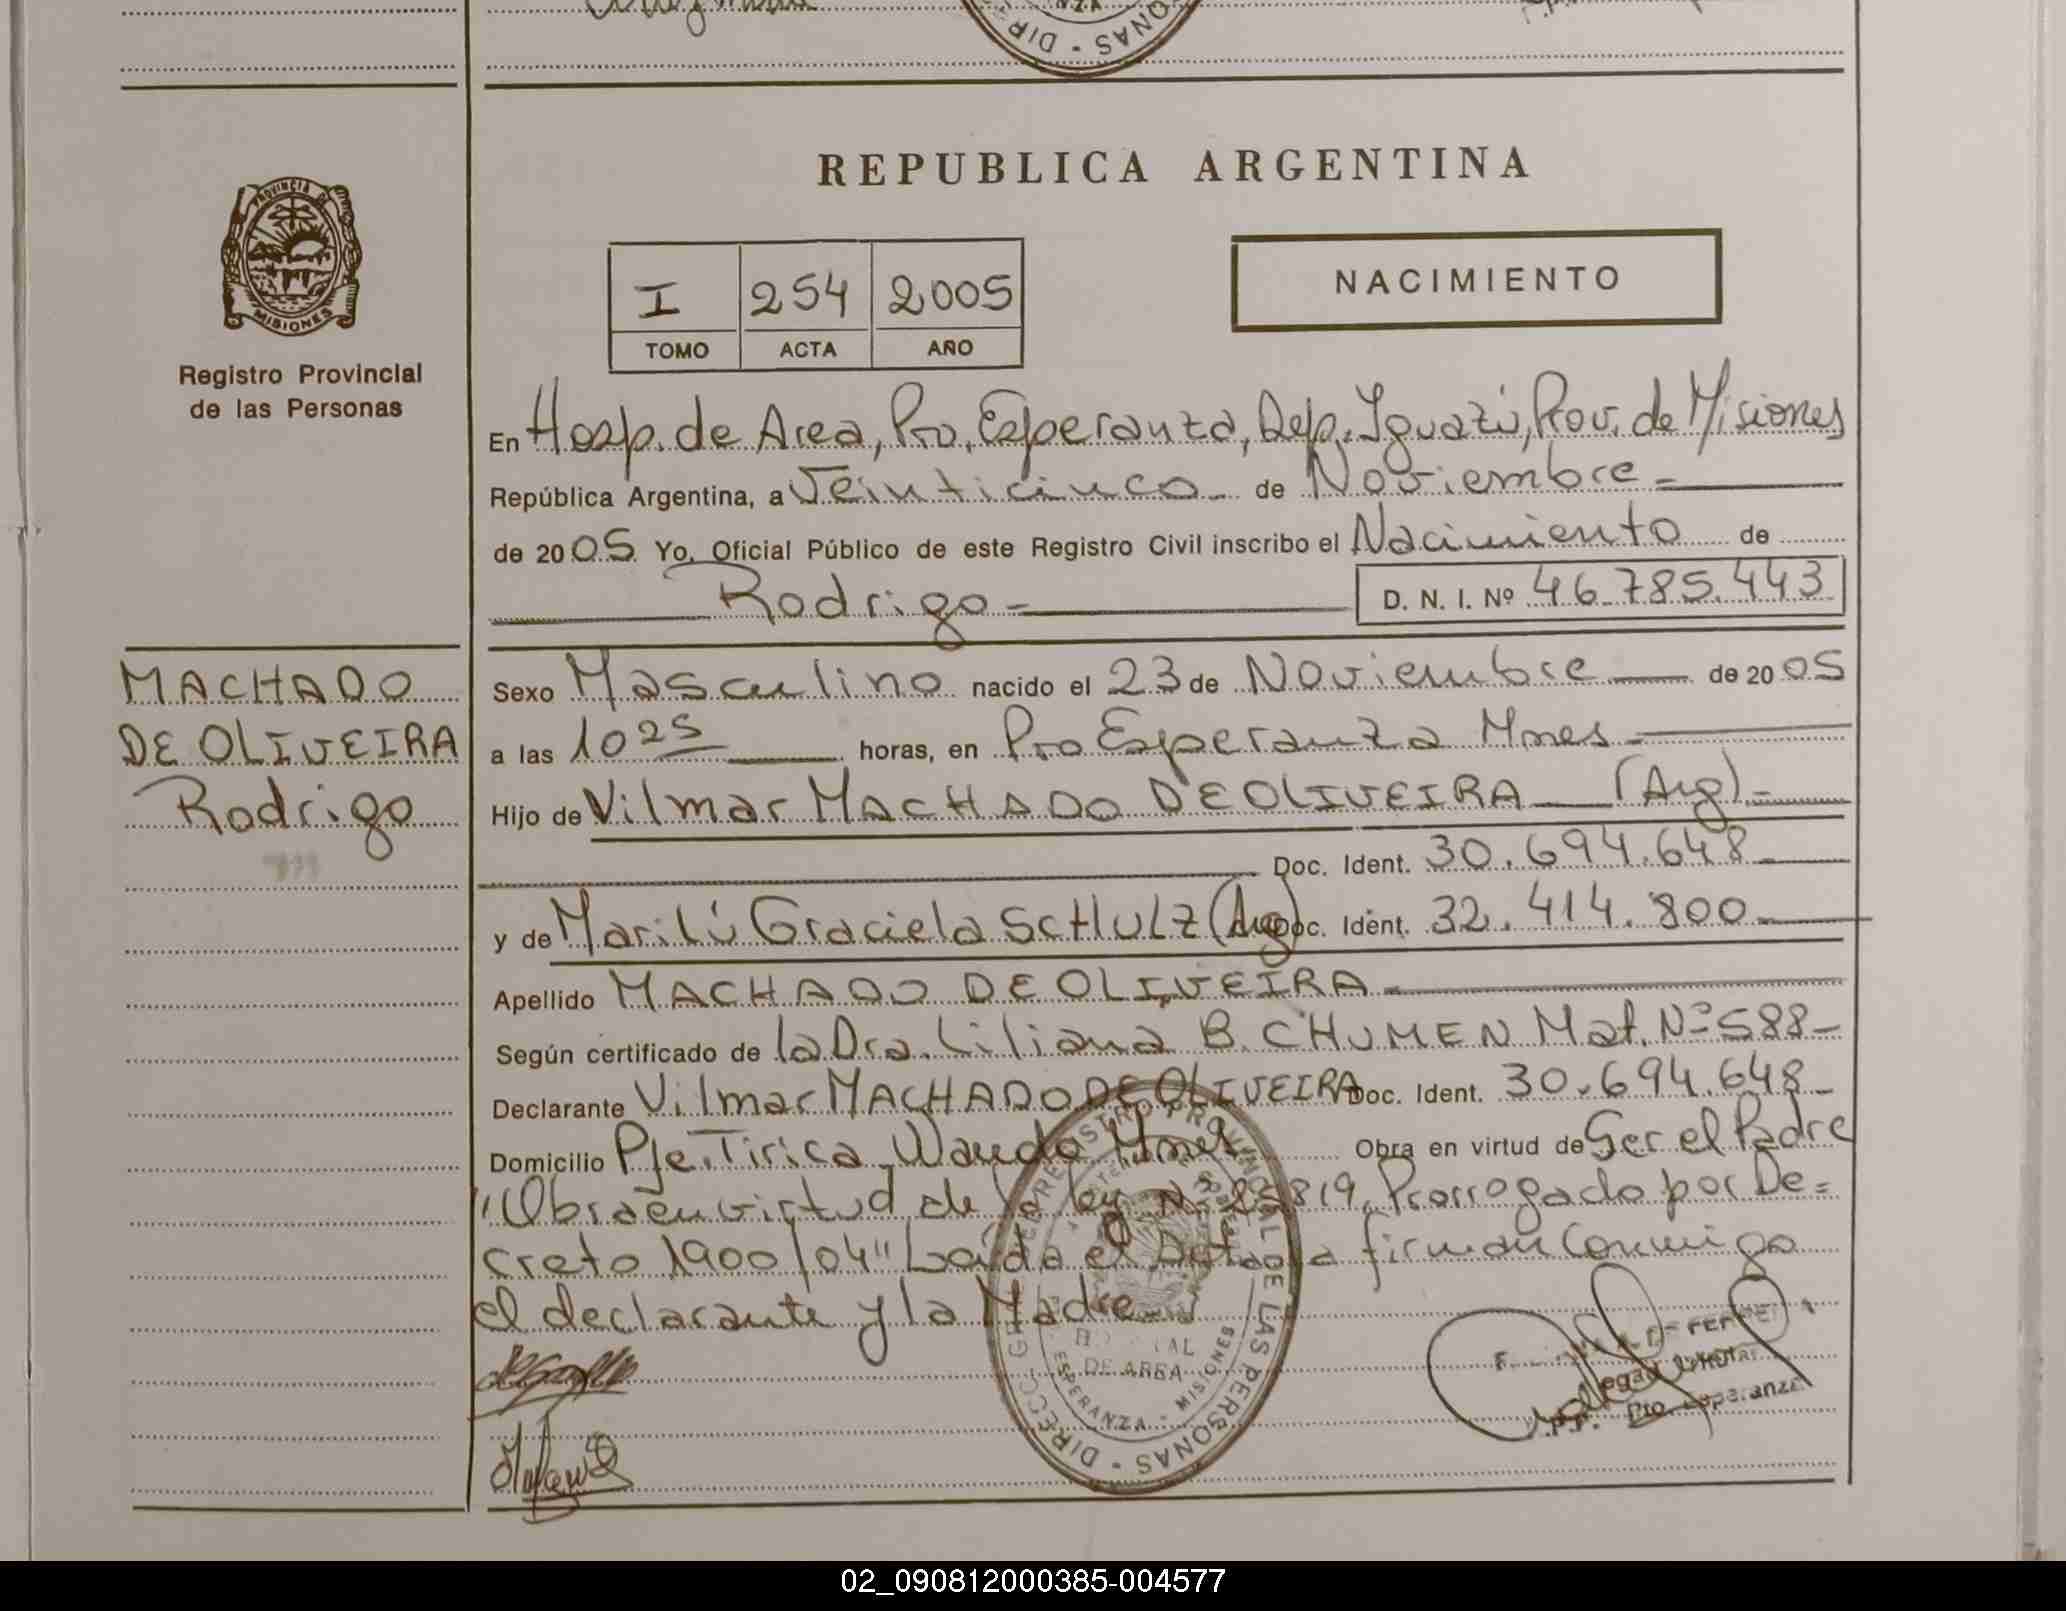 REPUBLICA ARGENTINA
PROVINCIA DE
MISIONES
Registro Provincial
de las Personas
I 254 2005
TOMO ACTA AÑO
NACIMIENTO
En Hosp. de Area, Pto. Esperanza, Dep. Iguazú, Prov. de Misiones
República Argentina, a Veinticinco de Noviembre
de 2005 Yo, Oficial Público de este Registro Civil inscribo el Nacimiento de
Rodrigo D. N. I. Nº 46.785.443
MACHADO
DE OLIVEIRA
Rodrigo
Sexo Masculino nacido el 23 de Noviembre de 2005
a las 10 25 horas, en Pto Esperanza Mnes
Hijo de Vilmar MACHADO DE OLIVEIRA (Arg)
Doc. Ident. 30.694.648
y de Marilú Graciela SCHULZ (Arg) Doc. Ident. 32.414.800
Apellido MACHADO DE OLIVEIRA
Según certificado de la Dra. Liliana B. CHUMEN Mat. Nº 588
Declarante Vilmar MACHADO DE OLIVEIRA Doc. Ident. 30.694.648
Domicilio Pje. Tirica Wanda Mnes Obra en virtud de Ser el Padre
"Obra en virtud de la ley Nº 25819, Prorrogado por De=
creto 1900/04" Leída el Acta la firman Conmigo
el declarante y la Madre
REGISTRO PROVINCIAL DE LAS PERSONAS
DE AREA
ESPERANZA - MISIONES
Pto. Esperanza
02_090812000385-004577